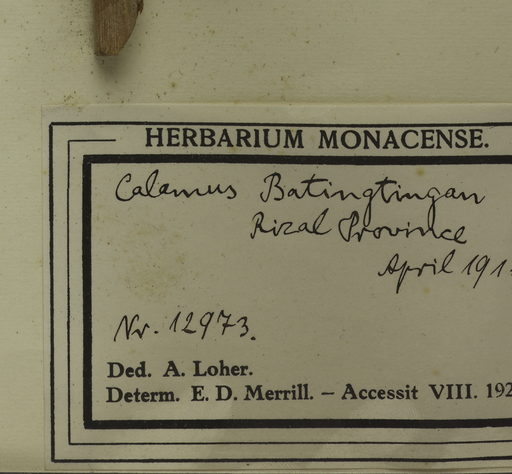 HERBARIUM MONACENSE.
Calamus Batingtingan
Rizal Province
April 191
Nr. 12973.
Ded. A. Loher.
Determ. E. D. Merrill. – Accessit VIII. 192